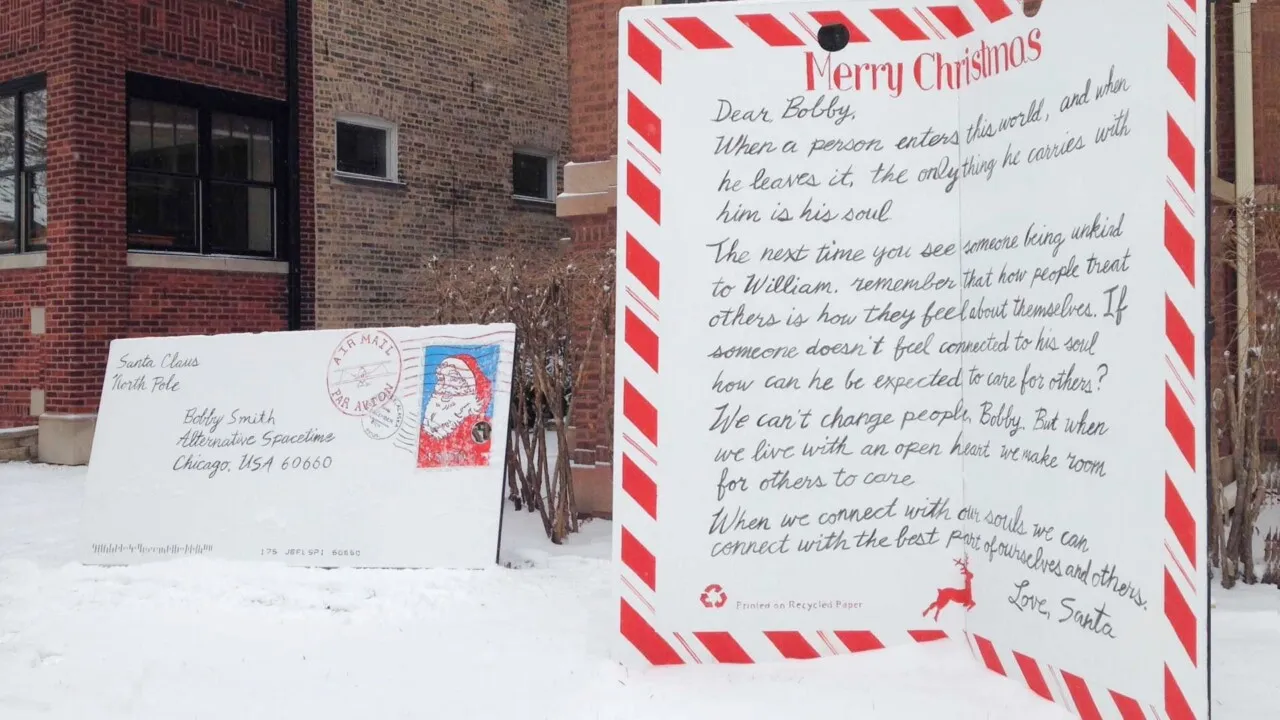 Santa Claus
North Pole
AIR MAIL
PAR AVION
Bobby Smith
Alternative Spacetime
Chicago, USA 60660
60660
Merry Christmas
Dear Bobby,
When a person enters this world, and when
he leaves it, the only thing he carries with
him is his soul.
The next time you see someone being unkind
to William, remember that how people treat
others is how they feel about themselves. If
someone doesn't feel connected to his soul
how can he be expected to care for others?
We can't change people, Bobby. But when
we live with an open heart we make room
for others to care.
When we connect with our souls we can
connect with the best part of ourselves and others.
Love, Santa
Printed on Recycled Paper